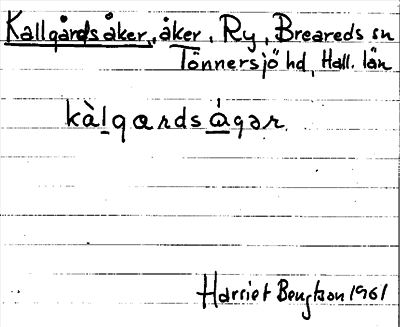 Kallgårdsåker, åker, Ry, Breareds sn
Tönnersjö hd, Hall. län
kàlgardságər
Harriet Bengtson 1961